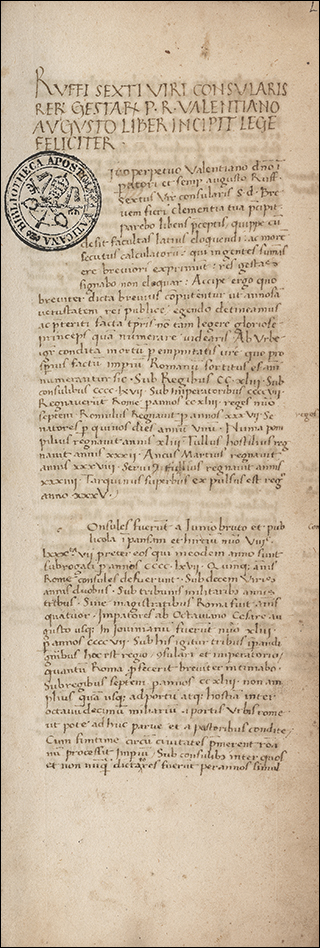 RUFFI SEXTI VIRI CONSULARIS
RER GESTAR P. R. VALENTIANO
AUGUSTO LIBER INCIPIT LEGE
FELICITER
BIBLIOTHECA APOSTOLICA VATICANA
perpetuo Valentiano
et semp augusto Ruff
Sextus Vir consularis S. d. Bre
uem fieri clementia tua
parebo libens
desit facultas latius eloquendi ac more
secutus calculatorū qui ingentes sumas
ere breuiori exprimunt res gestas
signabo non eloquar Accipe ergo quo
breuiter dicta breuius computentur ut annosā
uetustatem rei publice
preteriti facta no tam legere gloriose
princeps qua numerare uidearis Ab Vrbe
igr condita
imperii Romani
Sub Regibus CC xliii Sub
consulibus cccc lxvii Sub imperatoribus cccc vii
Regnauerut Rome p annos cc xliii reges nuo
septem Romulus Regnauit p annos xxxvii Se
natores p quinos dies annū unū Numa pom
pilius regnauit annis xliii Tullus hostilius reg
nauit annis xxxii Ancus Martius regnauit
annis xxxviii Seruius tullius regnauit annis
xxxiiii Tarquinius superbus expulsus est reg
anno xxxv
Onsules fuerūt a Iunio bruto et pub
licola
preter eos qui in eodem anno sunt
subrogati p annos cccc lxvii Quinq anis
Rome consules defuerunt Sub decem Viris
annis duobus Sub tribunis militarib annis
tribus Sine magistratibus Roma fuit anis
quatuor Impatores ab Octauiano Cesare au
gusto usq In Iouinianū fuerūt nūo xliii
p annos cccc vii Sub his igitur tribus
gnibus hoc est regio
quantū Roma pfecerit breuiter intimabo
Sub regibus septem p annos cc xliii non am
plius qua usq ad portū atq hostia inter
octauū decimū miliariū a portis Vrbis rome
ut pote ad huc parue et a pastoribus condite
Cum finitime circū ciuitates pmerent
processit Impiū Sub consulibus inter quos
et non nuq dictatores fuerūt per annos simul